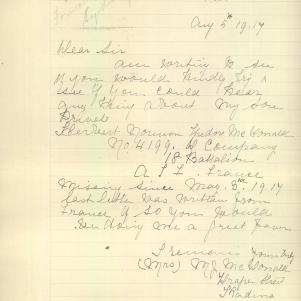 Aug 5th 1917
Dear Sir
am writing to see
if you would kindly try &
see if you could hear
any thing about my son
Private
Herbert Norman McDonald
No 4199. D Company
18 Battalion
A I F. France
Missing since May 3rd 1917
last letter was written from
France if so you would
be doing me a great favor
I remain yours truly
(Mrs) M J McDonald
Draper Street
Kadina